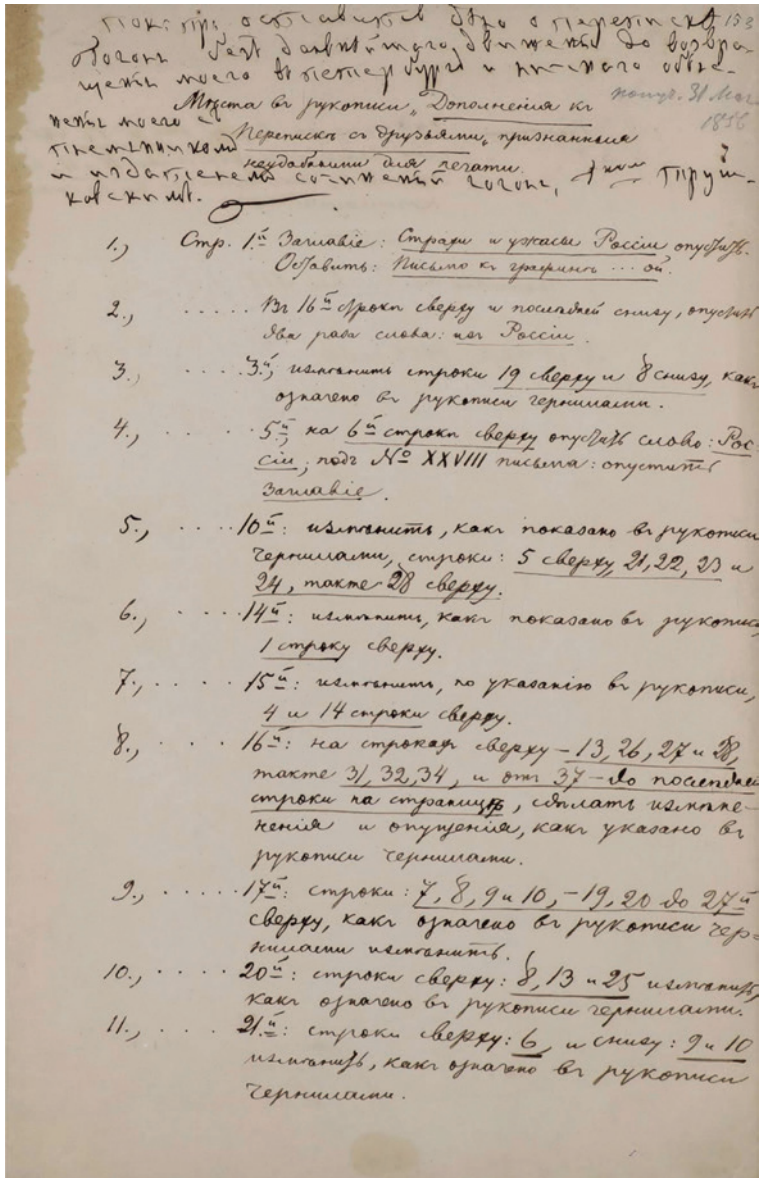 покорн. оставить дело о переписке 153
Гоголя без дальнѣйшаго движенія до возвра-
щенія моего въ Петербургъ и личнаго объяс-
Мѣста въ рукописи „Дополненія къ получ. 31 Мая
ненія моего съ 1856
Перепискѣ съ друзьями„ признанныя
племянникомъ
неудобными для печати.
и издателемъ сочиненій Гоголя, Труш-
ковскимъ.
1., Стр. 1й Заглавіе: Страхи и ужасы Россіи опустить.
Оставить: Письмо къ графинѣ ... ой.
2., ..... Въ 16й строкѣ сверху и послѣдней снизу, опустить
два раза слова: изъ Россіи.
3., .... 3й, измѣнить строки 19 сверху и 8 снизу, какъ
означено въ рукописи чернилами.
4., ..... 5й, на 6й строкѣ сверху опустить слово: Рос-
сіи, подъ № XXVIII письма: опустить
Заглавіе.
5., .... 10й: измѣнить, какъ показано въ рукописи
чернилами, строки: 5 сверху, 21, 22, 23 и
24, также 28 сверху.
6., .... 14й: измѣнить, какъ показано въ рукописи,
1 строку сверху.
7., .... 15й: измѣнить, по указанію въ рукописи,
4 и 14 строки сверху.
8., .... 16й: на строкахъ сверху – 13, 26, 27 и 28,
также 31, 32, 34, и отъ 37 – до послѣдней
строки на страницѣ, сдѣлать измѣне-
ненія и опущенія, какъ указано въ
рукописи чернилами.
9., ..... 17й: строки: 7, 8, 9 и 10, – 19, 20 до 27й
сверху, какъ означено въ рукописи чер-
нилами измѣнить.
10., .... 20й: строки сверху: 8, 13 и 25 измѣнить,
какъ означено въ рукописи чернилами.
11., .... 21й: строки сверху: 6, и снизу: 9 и 10
измѣнить, какъ означено въ рукописи
чернилами.